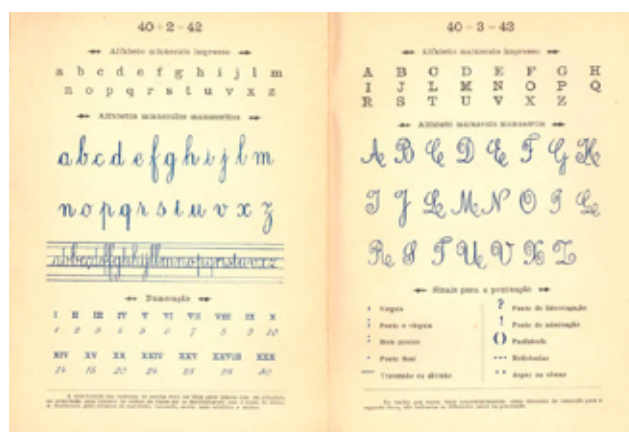 40 + 2 = 42
Alfabeto minúsculo impresso
a b c d e f g h i j l m
n o p q r s t u v x z
Alfabetos minúsculos manuscritos
a b c d e f g h i j l m
n o p q r s t u v x z
a b c d e f g h i j l m n o p q r s t u v x z
Numeração
I II III IV V VI VII VIII IX X
1 2 3 4 5 6 7 8 9 10
XIV XV XX XXIV XXV XXVIII XXX
14 15 20 24 25 28 30
40 + 3 = 43
Alfabeto maiúsculo impresso
A B C D E F G H
I J L M N O P Q
R S T U V X Z
Alfabeto maiúsculo manuscrito
A B C D E F G H
I J L M N O P Q
R S T U V X Z
Sinais para a pontuação
, Virgula
; Ponto e virgula
: Dois pontos
. Ponto final
— Travessão ou divisão
? Ponto de interrogação
! Ponto de admiração
() Parêntesis
... Reticências